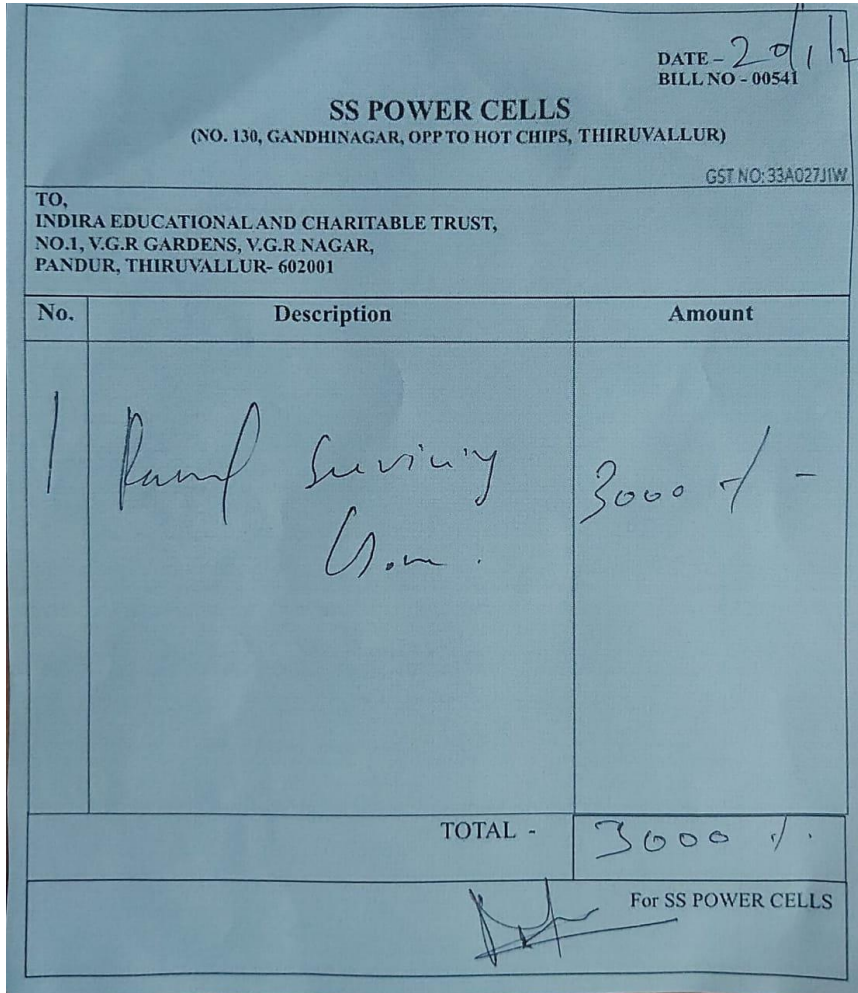 DATE - 20/1/2
BILL NO - 00541
SS POWER CELLS
(NO. 130, GANDHINAGAR, OPP TO HOT CHIPS, THIRUVALLUR)
GST NO: 33A027J1W
TO,
INDIRA EDUCATIONAL AND CHARITABLE TRUST,
NO.1, V.G.R GARDENS, V.G.R NAGAR,
PANDUR, THIRUVALLUR- 602001
No. Description Amount
1 3000 /-
TOTAL - 3000 /.
For SS POWER CELLS